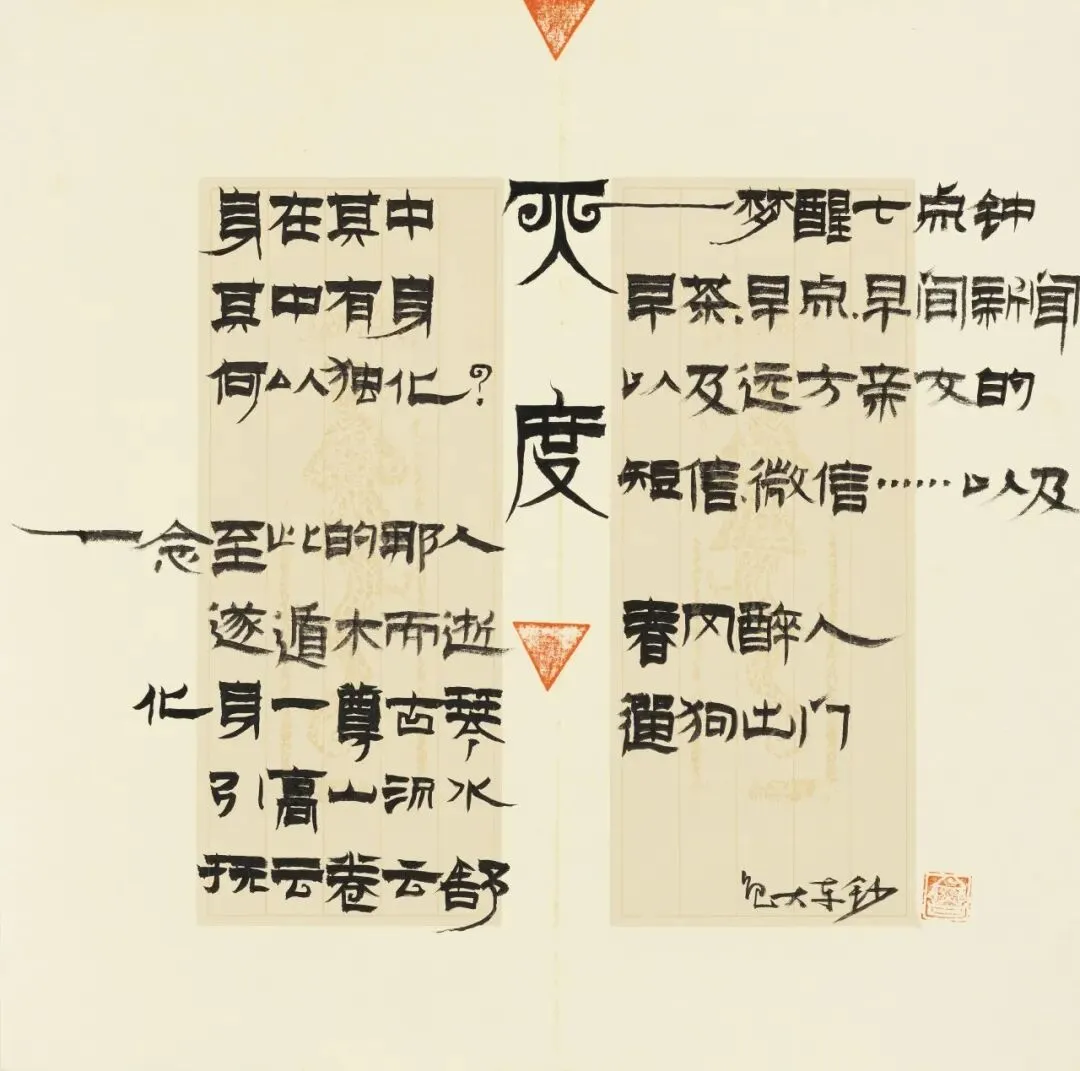 灭度
身在其中
其中有身
何以独化?
一念至此的那人
遂遁木而逝
化身一尊古琴,
引高山流水
抚云卷云舒
——梦醒七点钟
早茶、早点、早间新闻
以及远方亲女的
短信、微信……以及
春风醉人
遛狗出门
大 钞